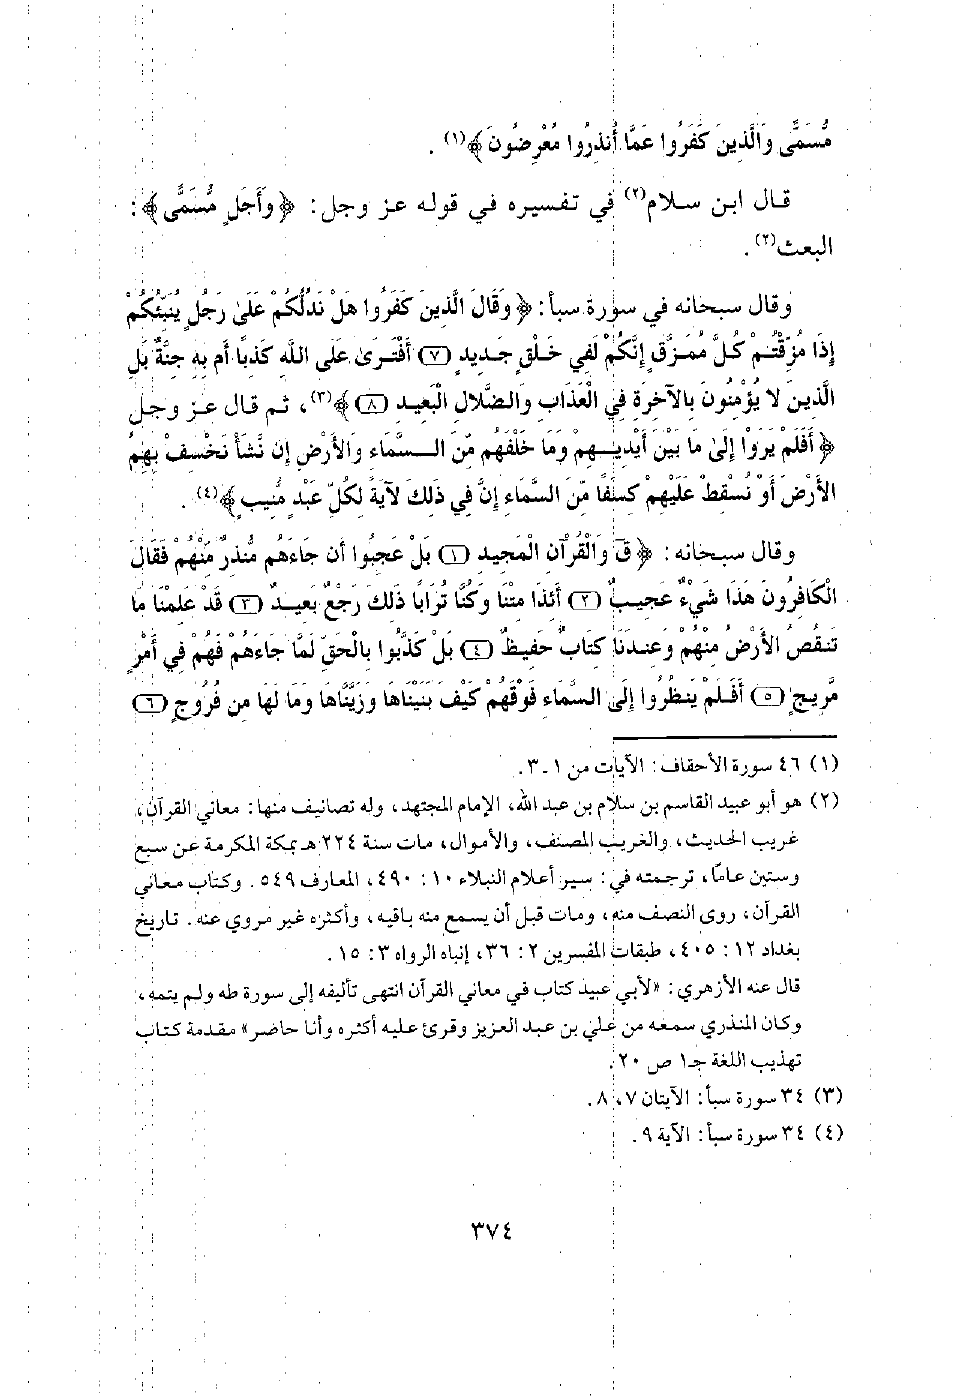 مُّسَمًّى وَالَّذِينَ كَفَرُوا عَمَّا أُنذِرُوا مُعْرِضُونَ﴾(١) .
قال ابن سلام(٢) في تفسيره في قوله عز وجل: ﴿وَأَجَلٍ مُّسَمًّى﴾:
البعث(٢) .
وقال سبحانه في سورة سبأ: ﴿وَقَالَ الَّذِينَ كَفَرُوا هَلْ نَدُلُّكُمْ عَلَىٰ رَجُلٍ يُنَبِّئُكُمْ
إِذَا مُزِّقْتُمْ كُلَّ مُمَزَّقٍ إِنَّكُمْ لَفِي خَلْقٍ جَدِيدٍ (٧) أَفْتَرَىٰ عَلَى اللَّهِ كَذِبًا أَم بِهِ جِنَّةٌ بَلِ
الَّذِينَ لَا يُؤْمِنُونَ بِالآخِرَةِ فِي الْعَذَابِ وَالضَّلالِ الْبَعِيدِ (٨)﴾(٣)، ثم قال عز وجل
﴿أَفَلَمْ يَرَوْا إِلَىٰ مَا بَيْنَ أَيْدِيهِمْ وَمَا خَلْفَهُم مِّنَ السَّمَاءِ وَالأَرْضِ إِن نَّشَأْ نَخْسِفْ بِهِمُ
الأَرْضَ أَوْ نُسْقِطْ عَلَيْهِمْ كِسَفًا مِّنَ السَّمَاءِ إِنَّ فِي ذَلِكَ لآيَةً لِكُلِّ عَبْدٍ مُّنِيبٍ﴾(٤) .
وقال سبحانه: ﴿قٓ وَالْقُرْآنِ الْمَجِيدِ (١) بَلْ عَجِبُوا أَن جَاءَهُم مُّنذِرٌ مِّنْهُمْ فَقَالَ
الْكَافِرُونَ هَذَا شَيْءٌ عَجِيبٌ (٢) أَئِذَا مِتْنَا وَكُنَّا تُرَابًا ذَلِكَ رَجْعٌ بَعِيدٌ (٣) قَدْ عَلِمْنَا مَا
تَنقُصُ الأَرْضُ مِنْهُمْ وَعِندَنَا كِتَابٌ حَفِيظٌ (٤) بَلْ كَذَّبُوا بِالْحَقِّ لَمَّا جَاءَهُمْ فَهُمْ فِي أَمْرٍ
مَّرِيجٍ (٥) أَفَلَمْ يَنظُرُوا إِلَى السَّمَاءِ فَوْقَهُمْ كَيْفَ بَنَيْنَاهَا وَزَيَّنَّاهَا وَمَا لَهَا مِن فُرُوجٍ (٦)
(١) ٤٦ سورة الأحقاف: الآيات من ١ـ ٣.
(٢) هو أبو عبيد القاسم بن سلام بن عبد الله، الإمام المجتهد، وله تصانيف منها: معاني القرآن،
غريب الحديث، والغريب المصنف، والأموال، مات سنة ٢٢٤هـ بمكة المكرمة عن سبع
وستين عاما، ترجمته في: سير أعلام النبلاء ١٠: ٤٩٠، المعارف ٥٤٩. وكتاب معاني
القرآن، روى النصف منه، ومات قبل أن يسمع منه باقيه، وأكثره غير مروي عنه. تاريخ
بغداد ١٢: ٤٠٥، طبقات المفسرين ٢: ٣٦، إنباه الرواه ٣: ١٥.
قال عنه الأزهري: «لأبي عبيد كتاب في معاني القرآن انتهى تأليفه إلى سورة طه ولم يتمه،
وكان المنذري سمعه من علي بن عبد العزيز وقرئ عليه أكثره وأنا حاضر» مقدمة كتاب
تهذيب اللغة جـ١ ص ٢٠.
(٣) ٣٤ سورة سبأ: الآيتان ٧، ٨.
(٤) ٣٤ سورة سبأ: الآية ٩.
٣٧٤